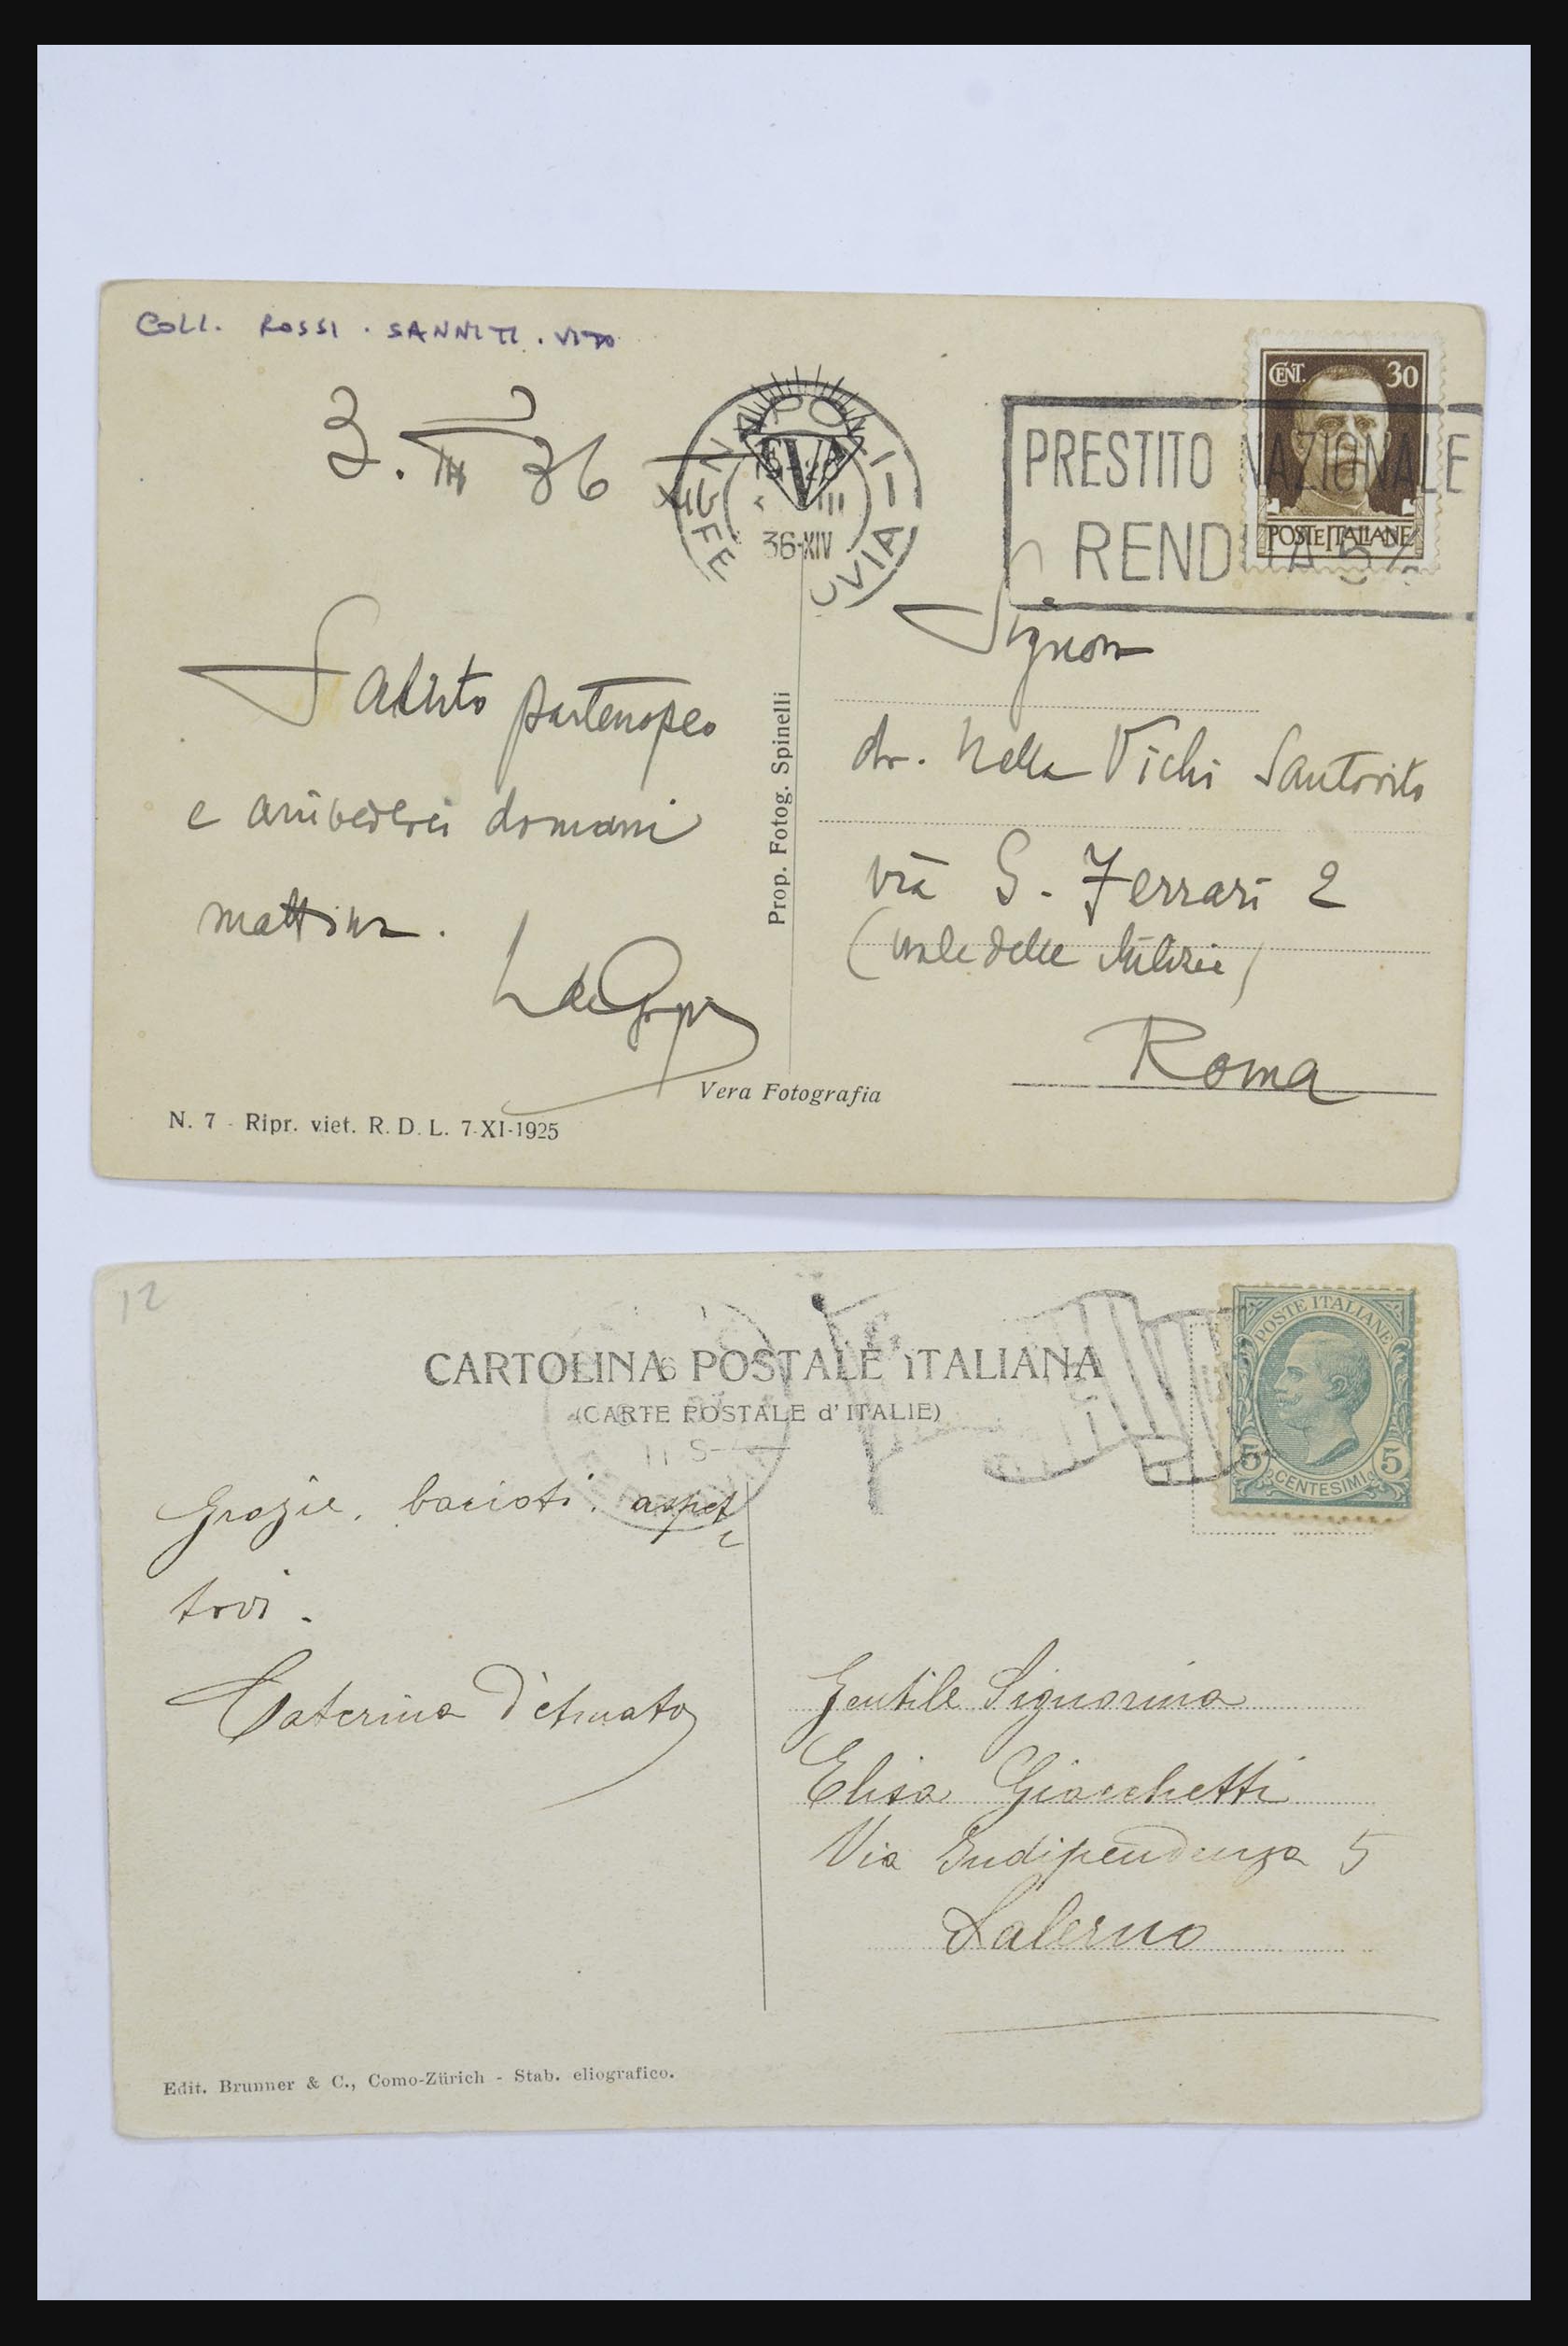 COLL. ROSSI. SANNITI. VITO
3. III 36 XIV
NAPOLI - FERROVIA
V
III
36-XIV
PRESTITO NAZIONALE
RENDITA 5%
CENT. 30
POSTE ITALIANE
Saluto partenopeo
e arrivederci domani
mattina.
Signora
dr. Nella Vichi Santorito
via G. Ferrari 2
(viale delle Milizie)
Roma
Prop. Fotog. Spinelli
Vera Fotografia
N. 7 - Ripr. viet. R. D. L. 7-XI-1925
12
CARTOLINA POSTALE ITALIANA
(CARTE POSTALE d'ITALIE)
POSTE ITALIANE
5 CENTESIMI 5
Grazie, baciati. aspet
tovi.
Caterina
Gentile Signorina
Elisa Giacchetti
Via Indipendenza 5
Salerno
Edit. Brunner & C., Como-Zürich - Stab. eliografico.